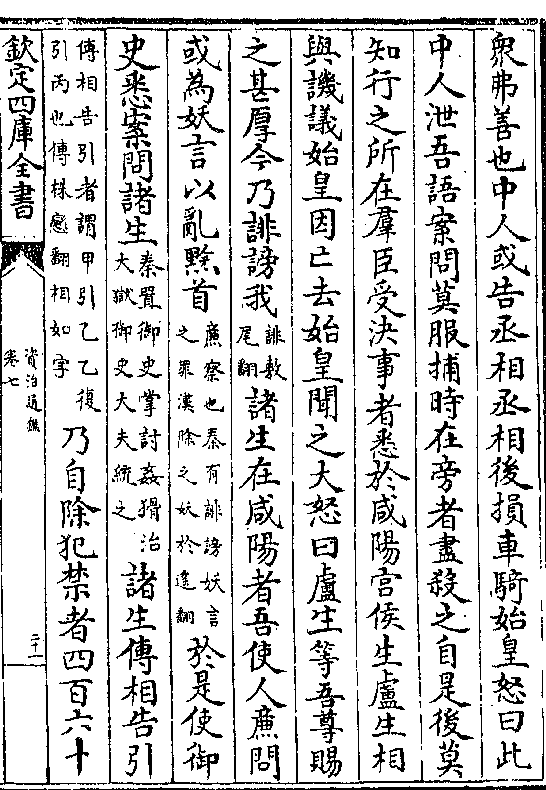 衆弗善也中人或告丞相丞相後損車騎始皇怒曰此
中人泄吾語案問莫服捕時在旁者盡殺之自是後莫
知行之所在羣臣受決事者悉於咸陽宫侯生盧生相
與譏議始皇因亡去始皇聞之大怒曰盧生等吾尊賜
之甚厚今乃誹謗我
誹敷
尾翻
諸生在咸陽者吾使人㢘問
或為妖言以亂黔首
㢘察也秦有誹謗妖言
之罪漢除之妖於遥翻
於是使御
史悉案問諸生
秦置御史掌討姦猾治
大獄御史大夫統之
諸生傳相告引
傳相告引者謂甲引乙乙復
引丙也傳株戀翻相如字
乃自除犯禁者四百六十
欽定四庫全書
資治通鑑
卷七
二十一